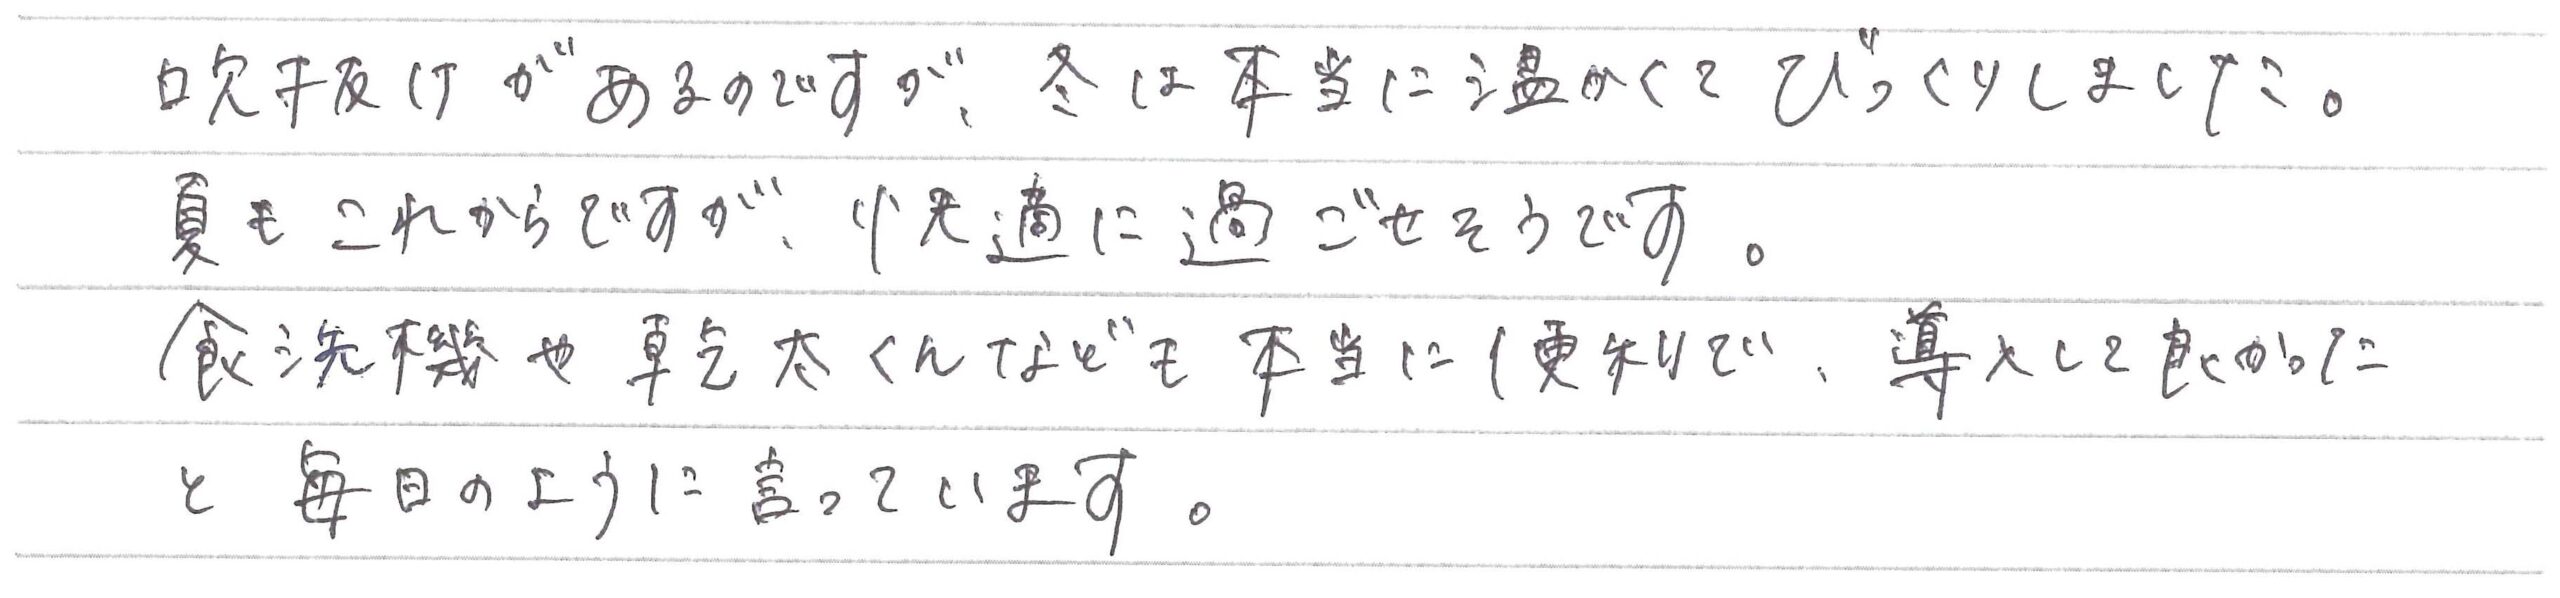 吹抜けがあるのですが、冬は本当に温かくてびっくりしました。
夏もこれからですが、快適に過ごせそうです。
食洗機や乾太くんなども本当に便利で、導入して良かった
と毎日のように言っています。